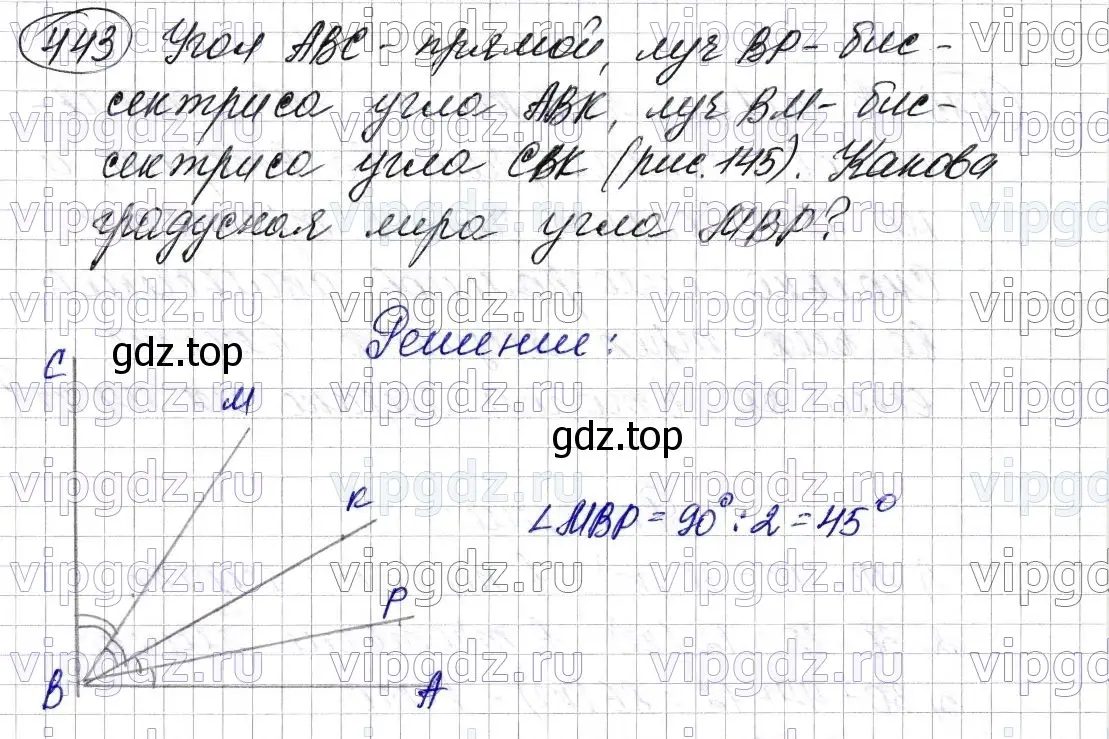 443 Угол ABC - прямой, луч BP - бис-
сектриса угла ABK, луч BM - бис-
сектриса угла CBK (рис. 145). Какова
градусная мера угла MBP?
Решение:
C
gdz.top
M
gdz.top
K
∠MBP = 90° : 2 = 45°
P
B
A
vipgdz.ru